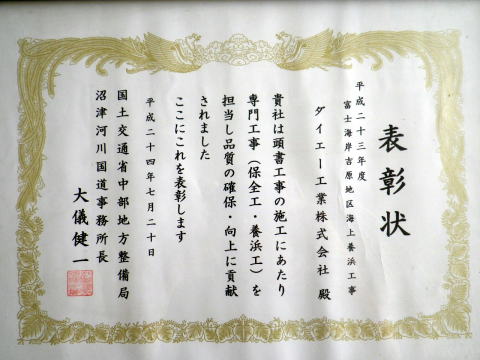 表彰状
平成二十三年度
富士海岸吉原地区海上養浜工事
ダイエー工業株式会社 殿
貴社は頭書工事の施工にあたり
専門工事（保全工・養浜工）を
担当し品質の確保・向上に貢献
されました
ここにこれを表彰します
平成二十四年七月二十日
国土交通省中部地方整備局
沼津河川国道事務所長
大儀健一